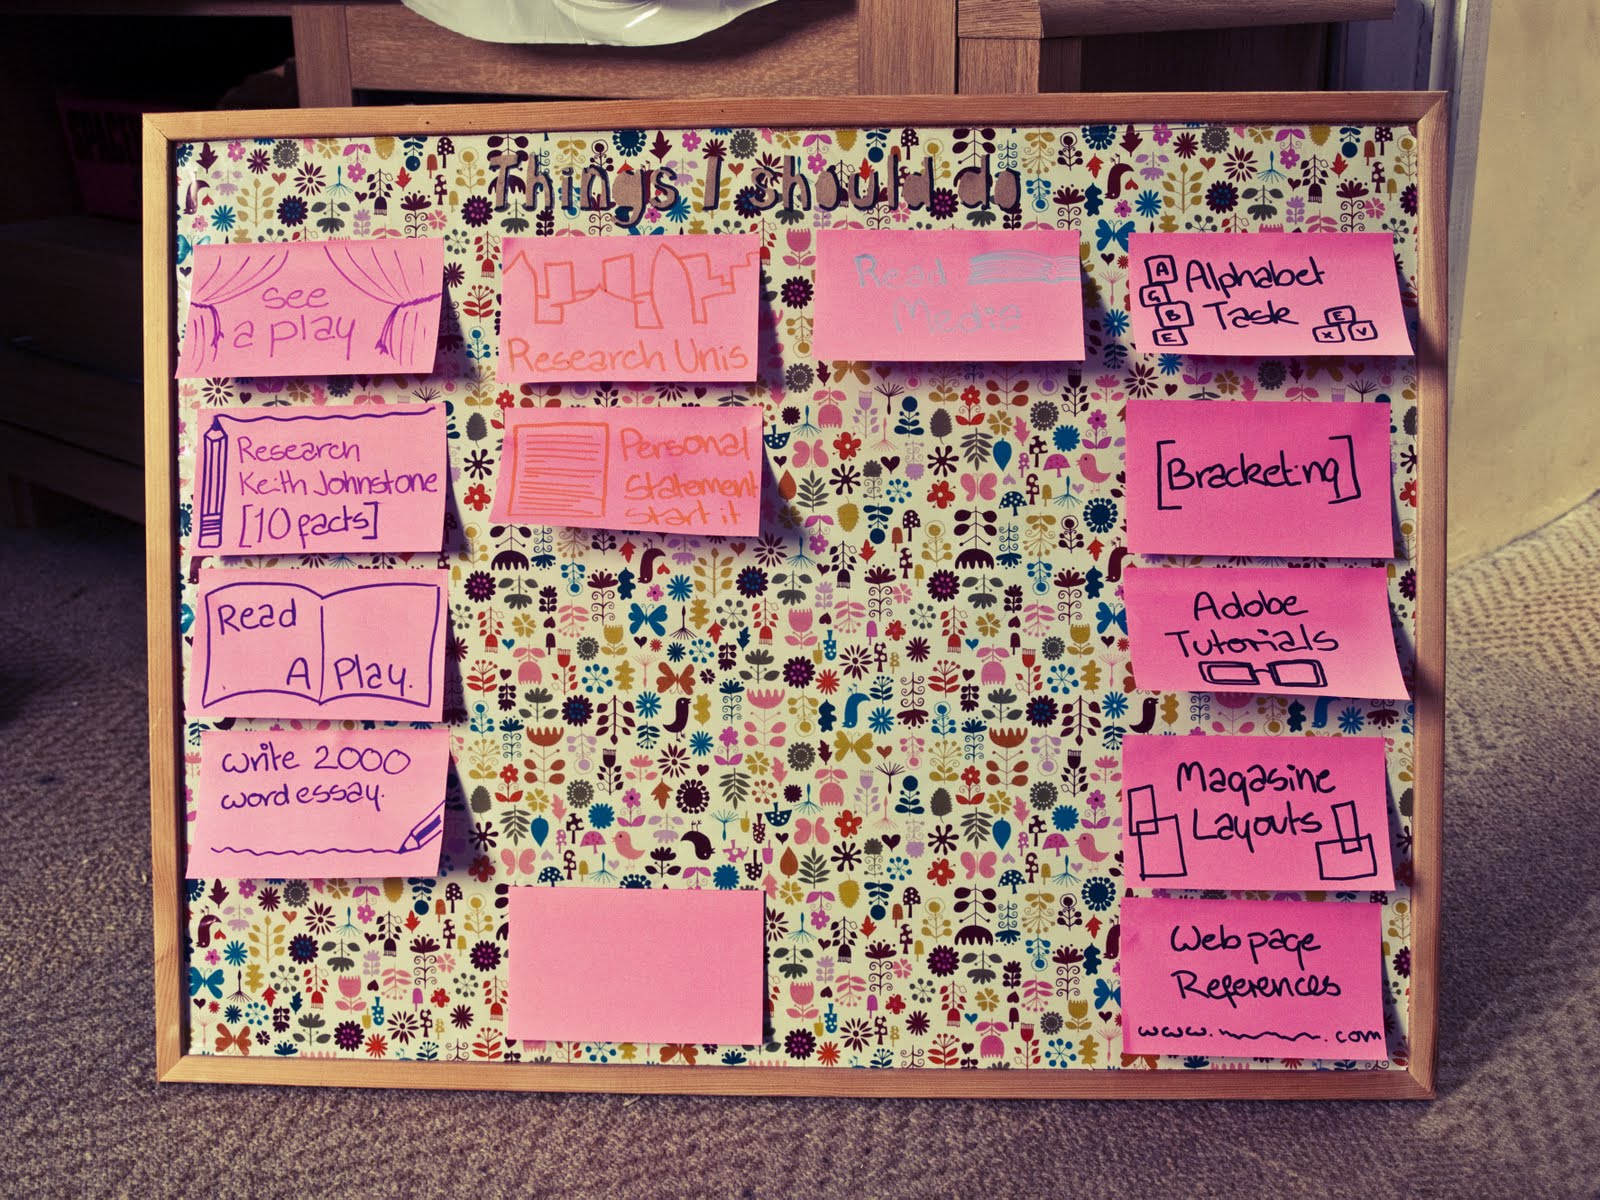 Things I should do
see
a play
Research
Keith Johnstone
[10 facts]
Read
A Play.
write 2000
word essay.
Research Unis
Personal
Statement
start it
Read
Media
A
G
B
E
Alphabet
Task
E
X V
[Bracketing]
Adobe
Tutorials
Magasine
Layouts
Web page
References
www. .com